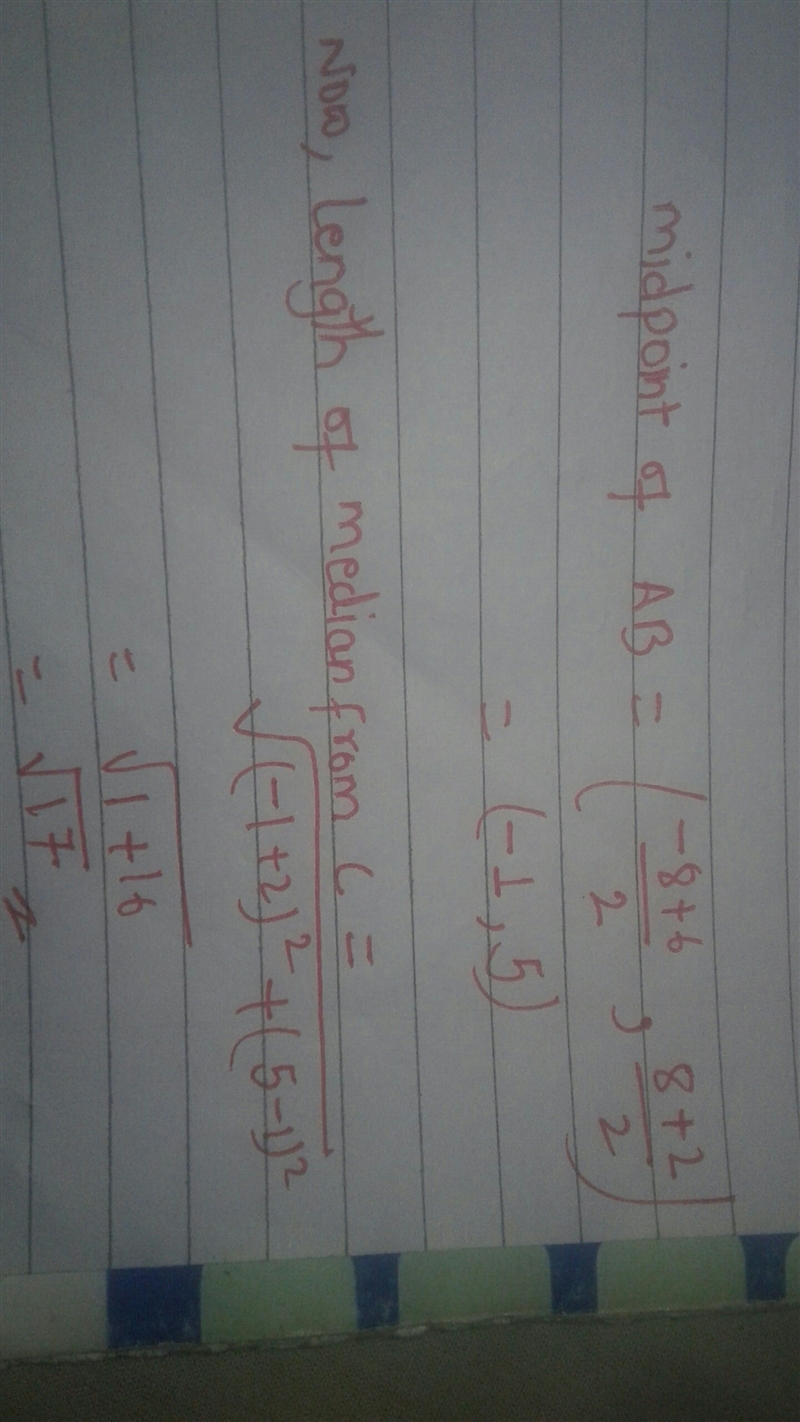 midpoint of AB = (-8+6/2 , 8+2/2)
= (-1, 5)
Now, length of median from C =
√(-1+2)² + (5-1)²
= √1+16
= √17